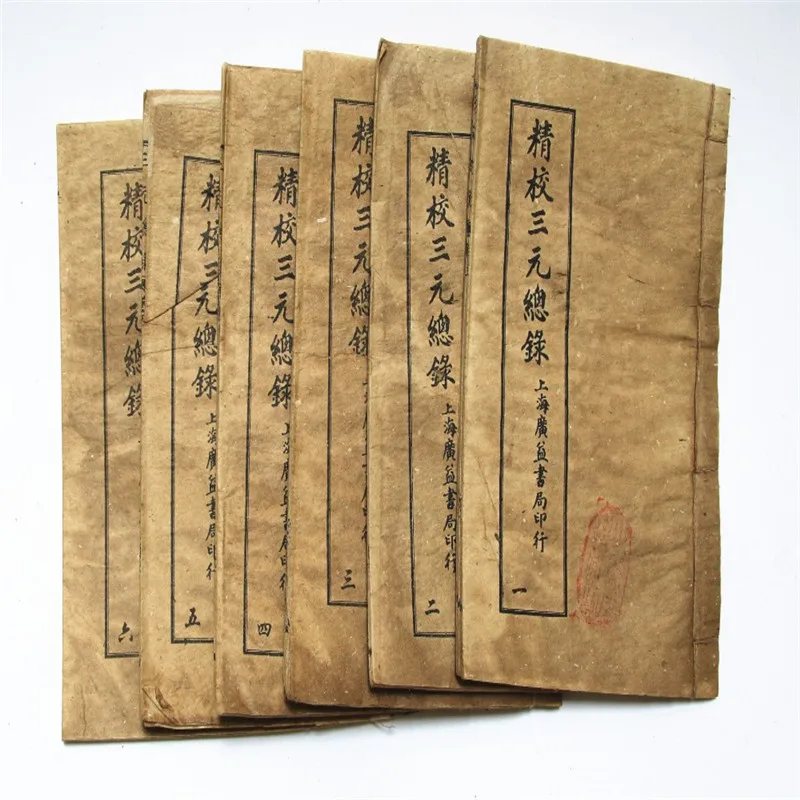 精校三元總錄
上海廣益書局印行
一
精校三元總錄
上海廣益書局印行
二
精校三元總錄
三
精校三元總錄
上海廣益書局印行
四
精校三元總錄
上海廣益書局印行
五
精校三元總錄
六